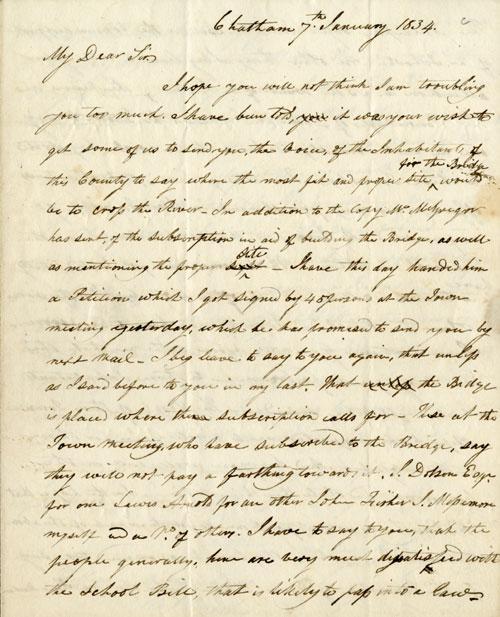 Chatham 7th January 1834.
My Dear Sir
I hope you will not think I am troubling
you too much. I have been told, you it was your wish to
get some of us to send you, the voice, of the Inhabitants, of
for the Bridge
this County to say where the most fit and proper site would
be to cross the River - In addition to the Copy Mr. McGregor
has sent, of the subscription in aid of building the Bridge, as well
site
as mentioning the proper - I have this day handed him
a Petition which I got signed by 45 persons at the Town
meeting yesterday, which he has promised to send you by
next Mail - I beg leave to say to you again, that unless
as I said before to you in my last. That unless the Bridge
is placed where the subscription calls for - Those at the
Town meeting, who have subscribed to the Bridge, say
they will not pay a farthing towards it. J. Dolson Esqr
for one Lewis Arnold for an other John Fisher J.
myself and a No. of others. I have to say to you, that the
people generally, here are very much dissatisfied with
the School Bill, that is likely to pass into a Law-